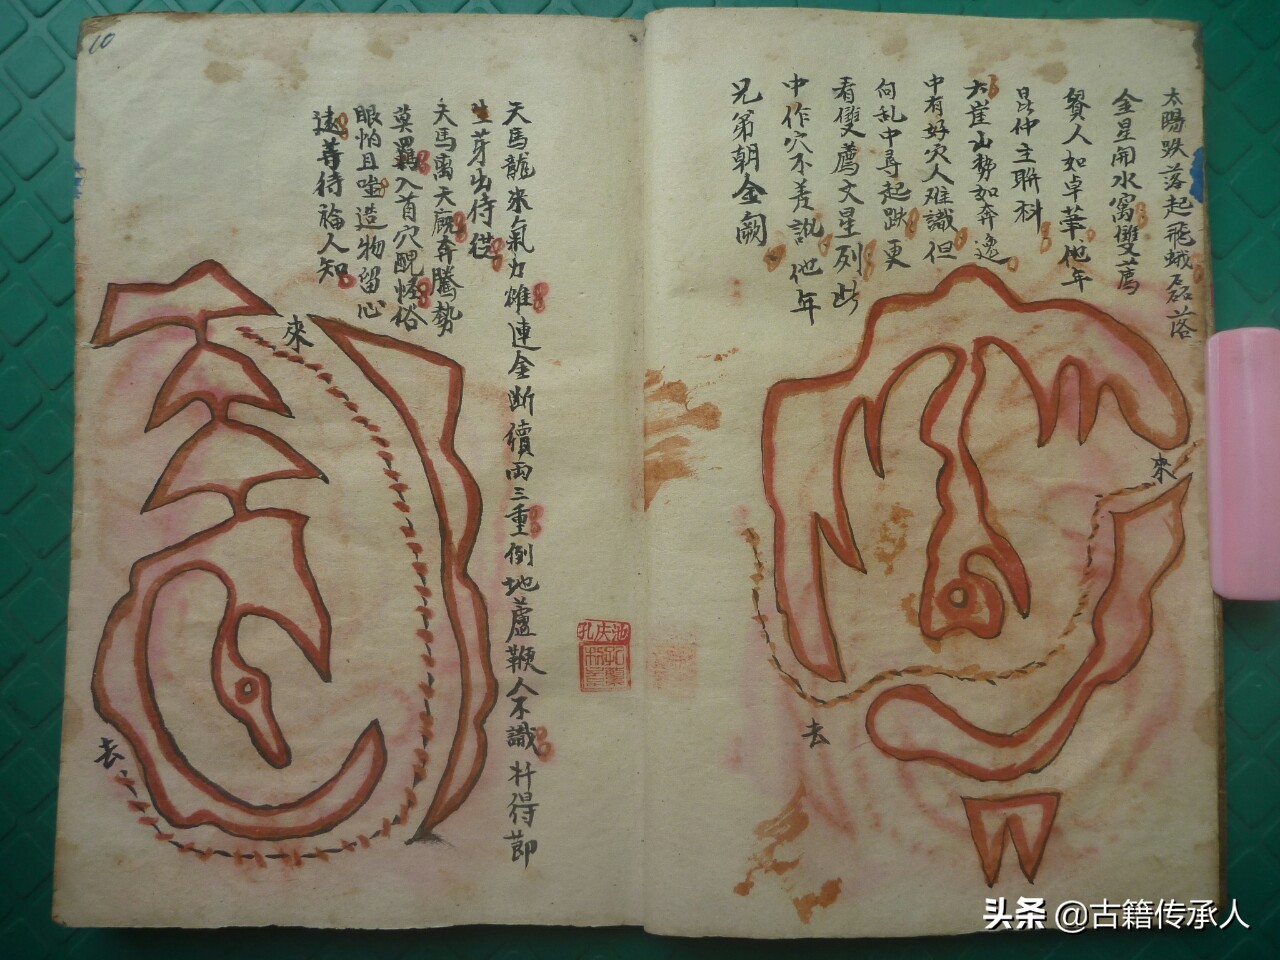 太陽跌落起飛蛾磊落
金星開水窩雙薦
賢人如卓華他年
昆仲主聯科
大崖山勢如奔逸
中有好穴人难識但
向乱中尋起跌更
看雙薦文星列此
中作穴不差訛他年
兄弟朝金闕
來
去
10
天馬龍来氣力雄連金断續兩三重倒地蘆鞭人不識杄得節
生芽出侍從
天馬离天廄奔騰勢
莫羈入首穴醜怪俗
眼怕且嗤造物留心
遠等待福人知
來
去
头条 @古籍传承人